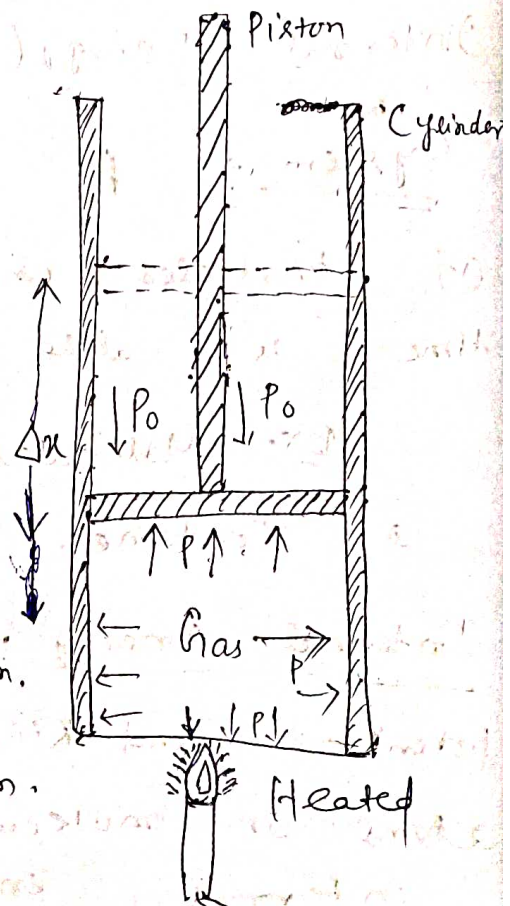 Piston
Cylinder
P₀ P₀
Δx
P
Gas
P
n.
P
n.
Heated